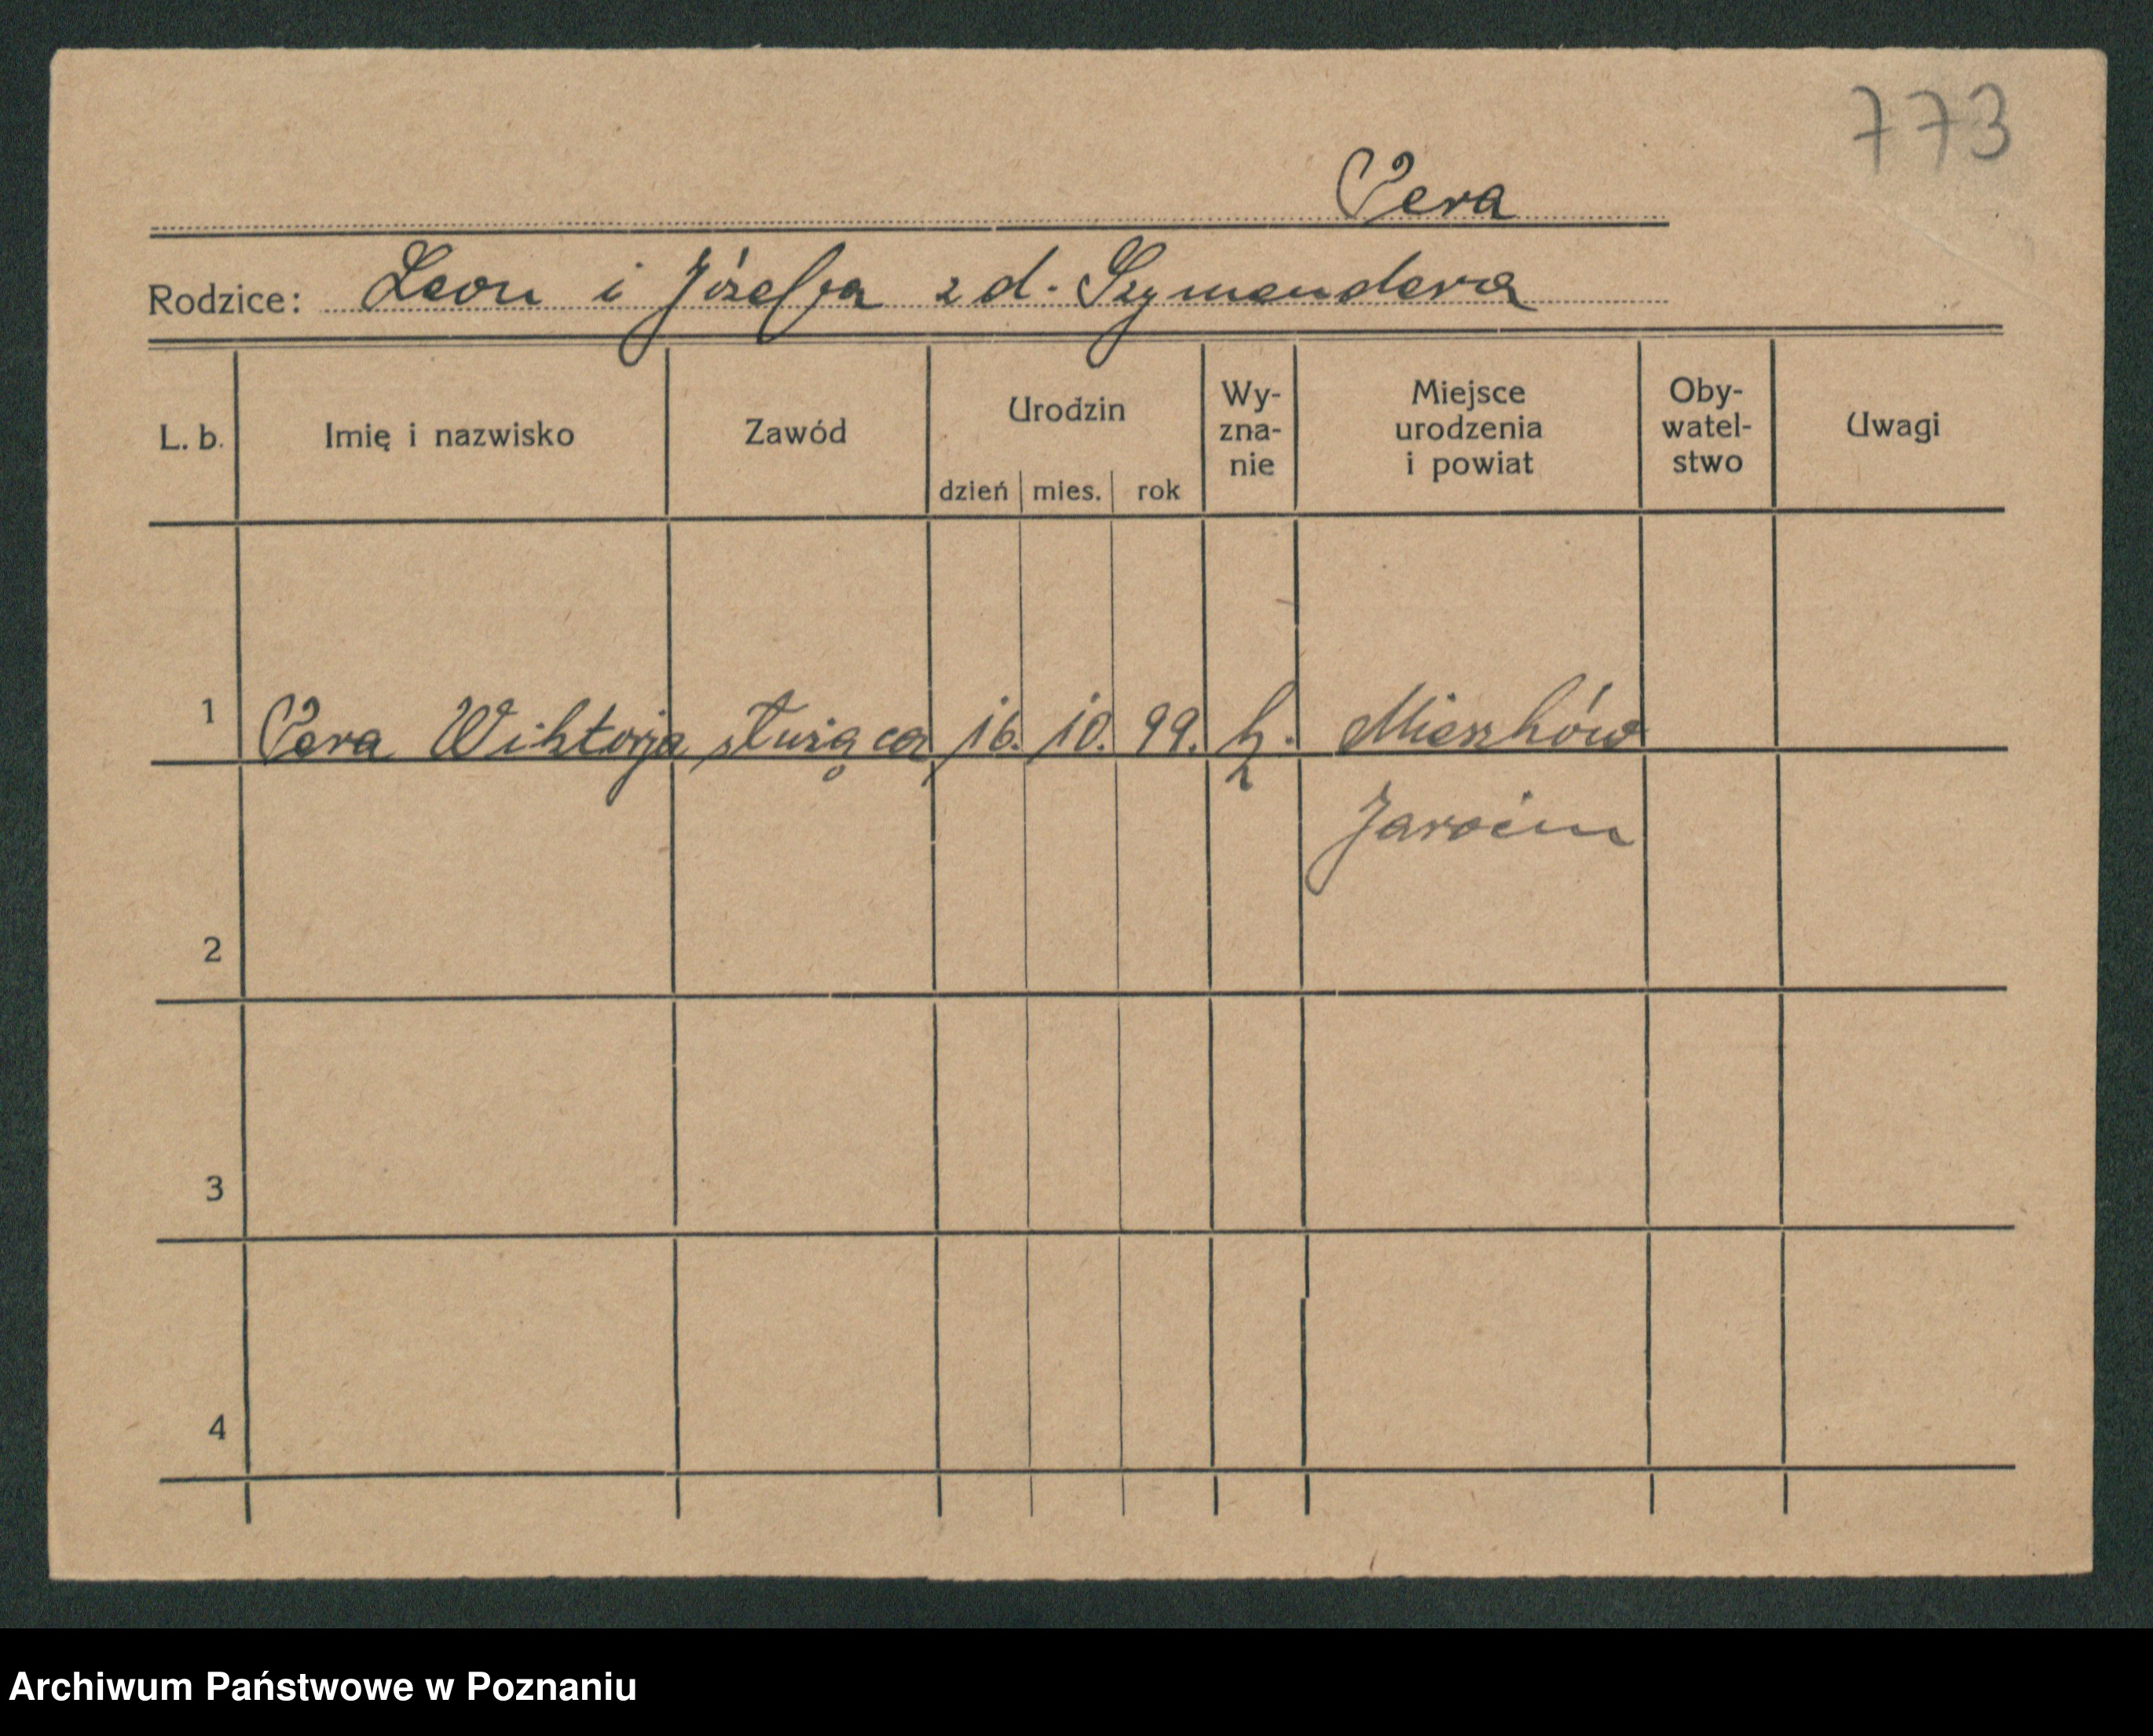 773
Pera
Rodzice: Leon i Józefa z d. Szymendera
L. b. Imię i nazwisko Zawód Urodzin dzień mies. rok Wy-zna-nie Miejsce urodzenia i powiat Oby-watel-stwo Uwagi
1 Pera Wiktorja służąca 16. 10. 99. k. Mieszków
Jarocin
2
3
4
Archiwum Państwowe w Poznaniu